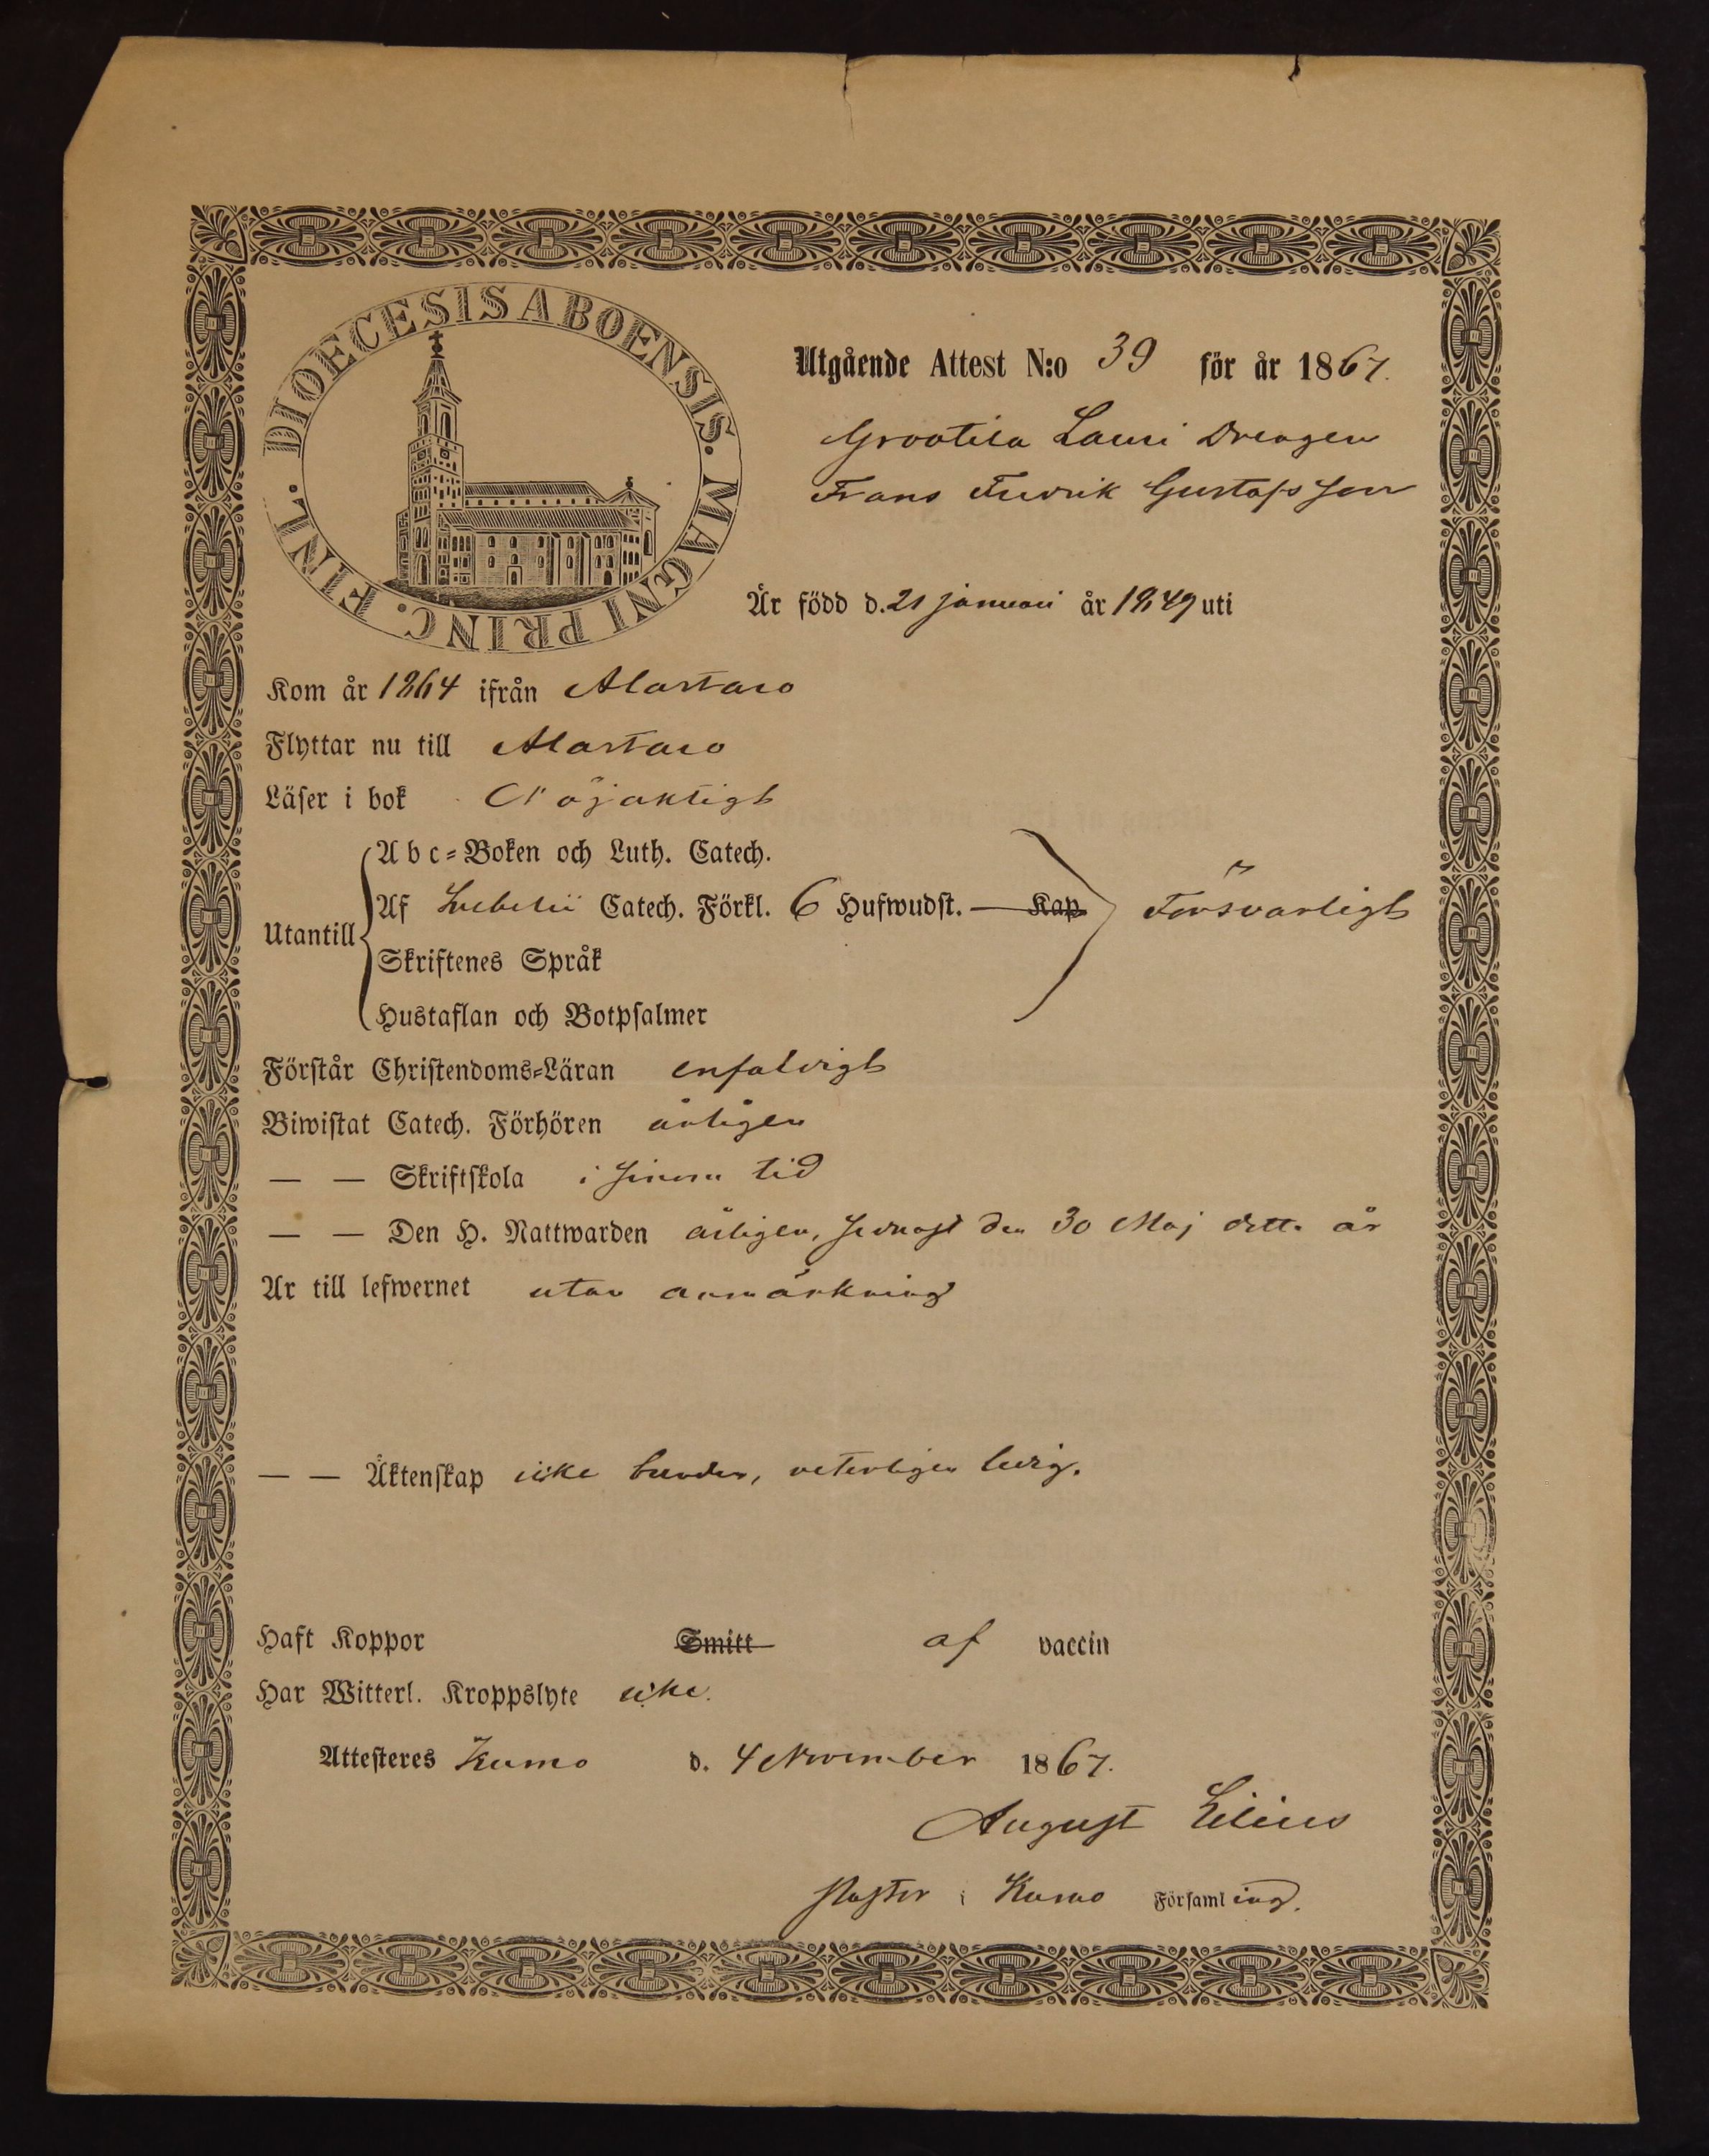 DIOECESIS ABOENSIS. MAGNI PRINC. FINL.
Utgående Attest N:o 39 för år 1867.
Grootila Lauri Drengen
Frans Fredrik Gustafsson
Är född d. 21 januari år 1849 uti
Kom år 1864 ifrån Alastaro
Flyttar nu till Alastaro
Läser i bok Nöjaktigt
Utantill
A b c=Boken och Luth. Catech.
Af Svebelii Catech. Förkl. 6 Hufwudst. — Kap
Skriftenes Språk
Hustaflan och Botpsalmer
Försvarligt
Förstår Christendoms=Läran enfaldigt
Biwistat Catech. Förhören årligen
— — Skriftskola i sinom tid
— — Den H. Nattwarden årligen, sednast den 30 Maj detta år
Är till lefwernet utan anmärkning
— — Äktenskap icke bunden, veterligen ledig.
Haft Koppor Smitt af vaccin
Har Witterl. Kroppslyte icke.
Attesteres Kumo d. 4 November 1867.
August Lilius
Pastor i Kumo Församling.